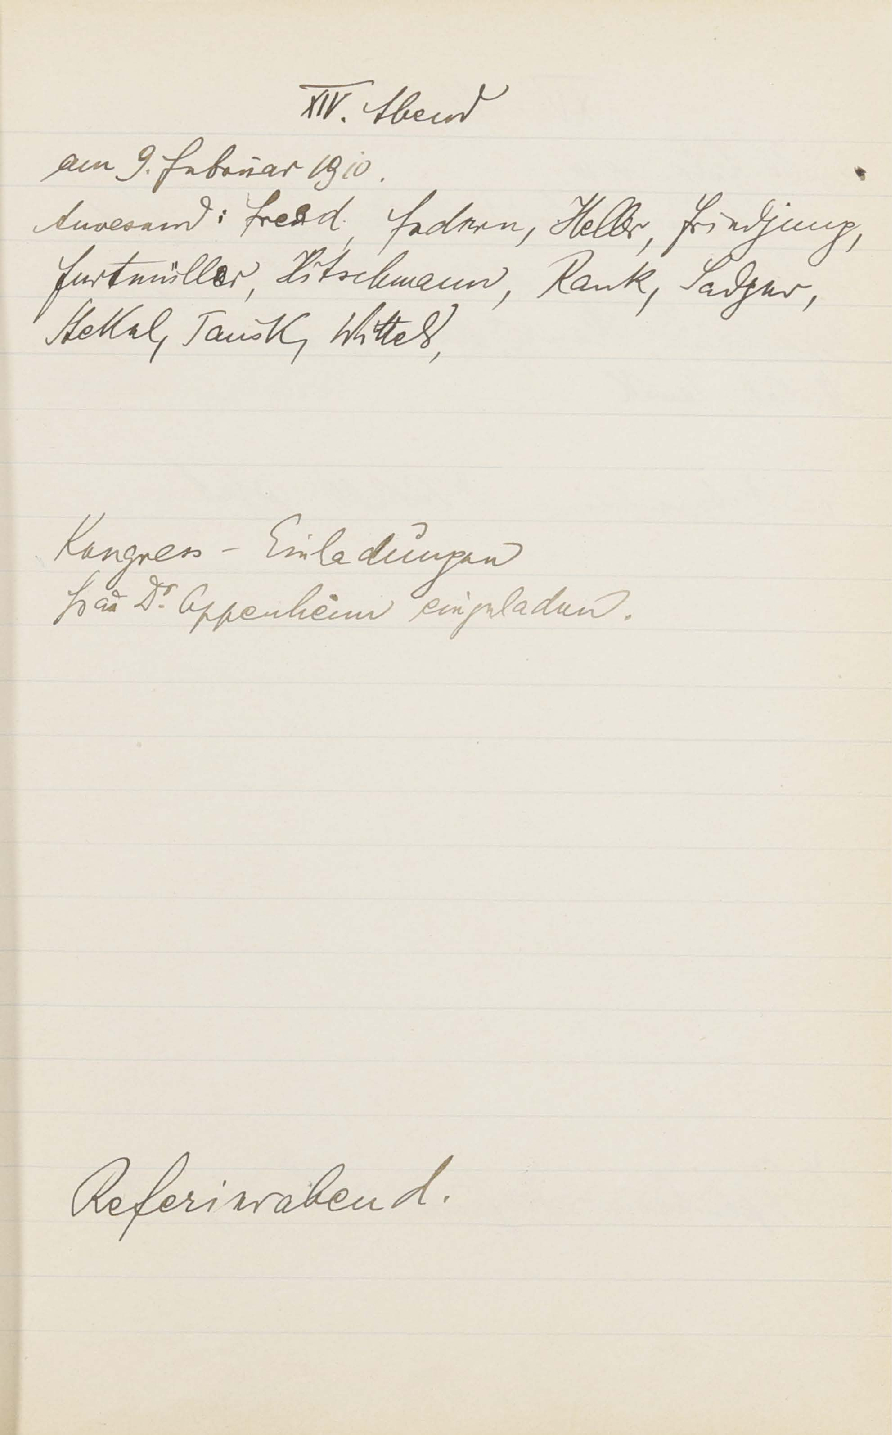 XIV. Abend
am 9. Februar 1910.
Anwesend: Freud, Federn, Heller, Friedjung,
Furtmüller, Hitschmann, Rank, Sadger,
Stekel, Tausk, Wittels,
Kongress - Einladungen
Frau Dr. Oppenheim eingeladen.
Referierabend.